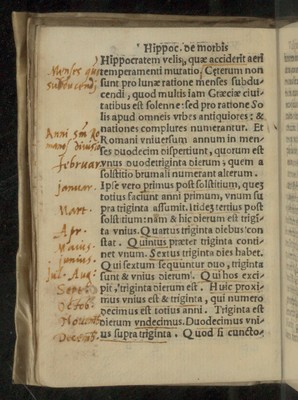 Hippoc. de morbis
Hippocratem velis, quæ acciderit aeri
temperamenti mutatio. Ceterum non
sunt pro lunæ ratione menses subdu-
cendi, quod multis iam Græciæ ciui-
tatibus est solenne: sed pro ratione So
lis apud omneis vrbes antiquiores: &
nationes complures numerantur. Et
Romani vniuersum annum in men-
ses duodecim dispertiunt, quorum est
vnus duodetriginta dierum, quem a
solstitio brumali numerant alterum.
Ipse vero primus post solstitium, quez
totius faciunt anni primum, vnum su
pra triginta assumit. Itidez tertius post
solstitium: nam & hic dierum est trigī
ta vnius. Quartus triginta diebus con
stat. Quintus præter triginta conti-
net vnum. Sextus triginta dies habet.
Qui sextum sequuntur duo, triginta
sunt & vnius dierum. Qui hos exci-
pit, triginta dierum est. Huic proxi
mus vnius est & triginta, qui numero
decimus est totius anni. Triginta est
dierum vndecimus. Duodecimus vni-
us supra triginta. Quod si cuncto-
Menses qui
subducendi
Anni
Februar.
Januar.
Mart.
Apr.
Maius.
Junius.
Jul. Aug:
Septeb.
Octob.
Novemb.
Decemb.